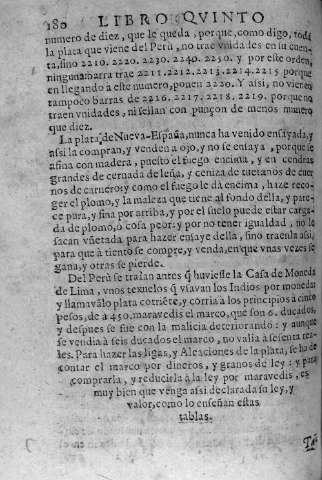 280 LIBRO QVINTO
numero de diez, que le queda, porque, como digo, toda
la plata que viene del Perù, no trae vnidades en su cuen-
ta, sino 2210. 2220. 2230. 2240. 2250. y por este orden,
ninguna barra trae 2211. 2212. 2213. 2214. 2215 porque
en llegando a este numero, ponen 2220. Y assi, no vienen
tampoco barras de 2216. 2217. 2218. 2219. porque no
traen vnidades, ni señalan con punçon de menos numero
que diez.
La plata de Nueva-España, nunca ha venido ensayada, y
assi la compran, y venden a ojo, y no se ensaya, porque se
afina con madera, puesto el fuego encima, y en cendras
grandes de cernada de leña, y ceniza de tuetanos de cuer
nos de carnero; y como el fuego le dà encima, haze reco-
ger el plomo, y la maleza que tiene al fondo della, y pare-
ce pura, y fina por arriba, y por el suelo puede estar carga-
da de plomo, ò cosa peor: y por no tener igualdad, no le
sacan vñetada para hazer ensaye della, sino traenla assi,
para que à tiento se compre, y venda, en que vnas vezes se
gana, y otras se pierde.
Del Perù se traían antes q̃ huviesse la Casa de Moneda
de Lima, vnos texuelos q̃ vsavan los Indios por monedas
y llamavãlo plata corriẽte, y corria à los principios à cinco
pesos, de à 450. maravedis el marco, que son 6. ducados,
y despues se fue con la malicia deteriorando: y aunque
se vendia à seis ducados el marco, no valia à sesenta rea-
les. Para hazer las ligas, y Aleaciones de la plata, se ha de
contar el marco por dineros, y granos de ley: y para
comprarla, y reducirla à la ley por maravedis, es
muy bien que venga assi declarada su ley, y
valor, como lo enseñan estas
tablas.